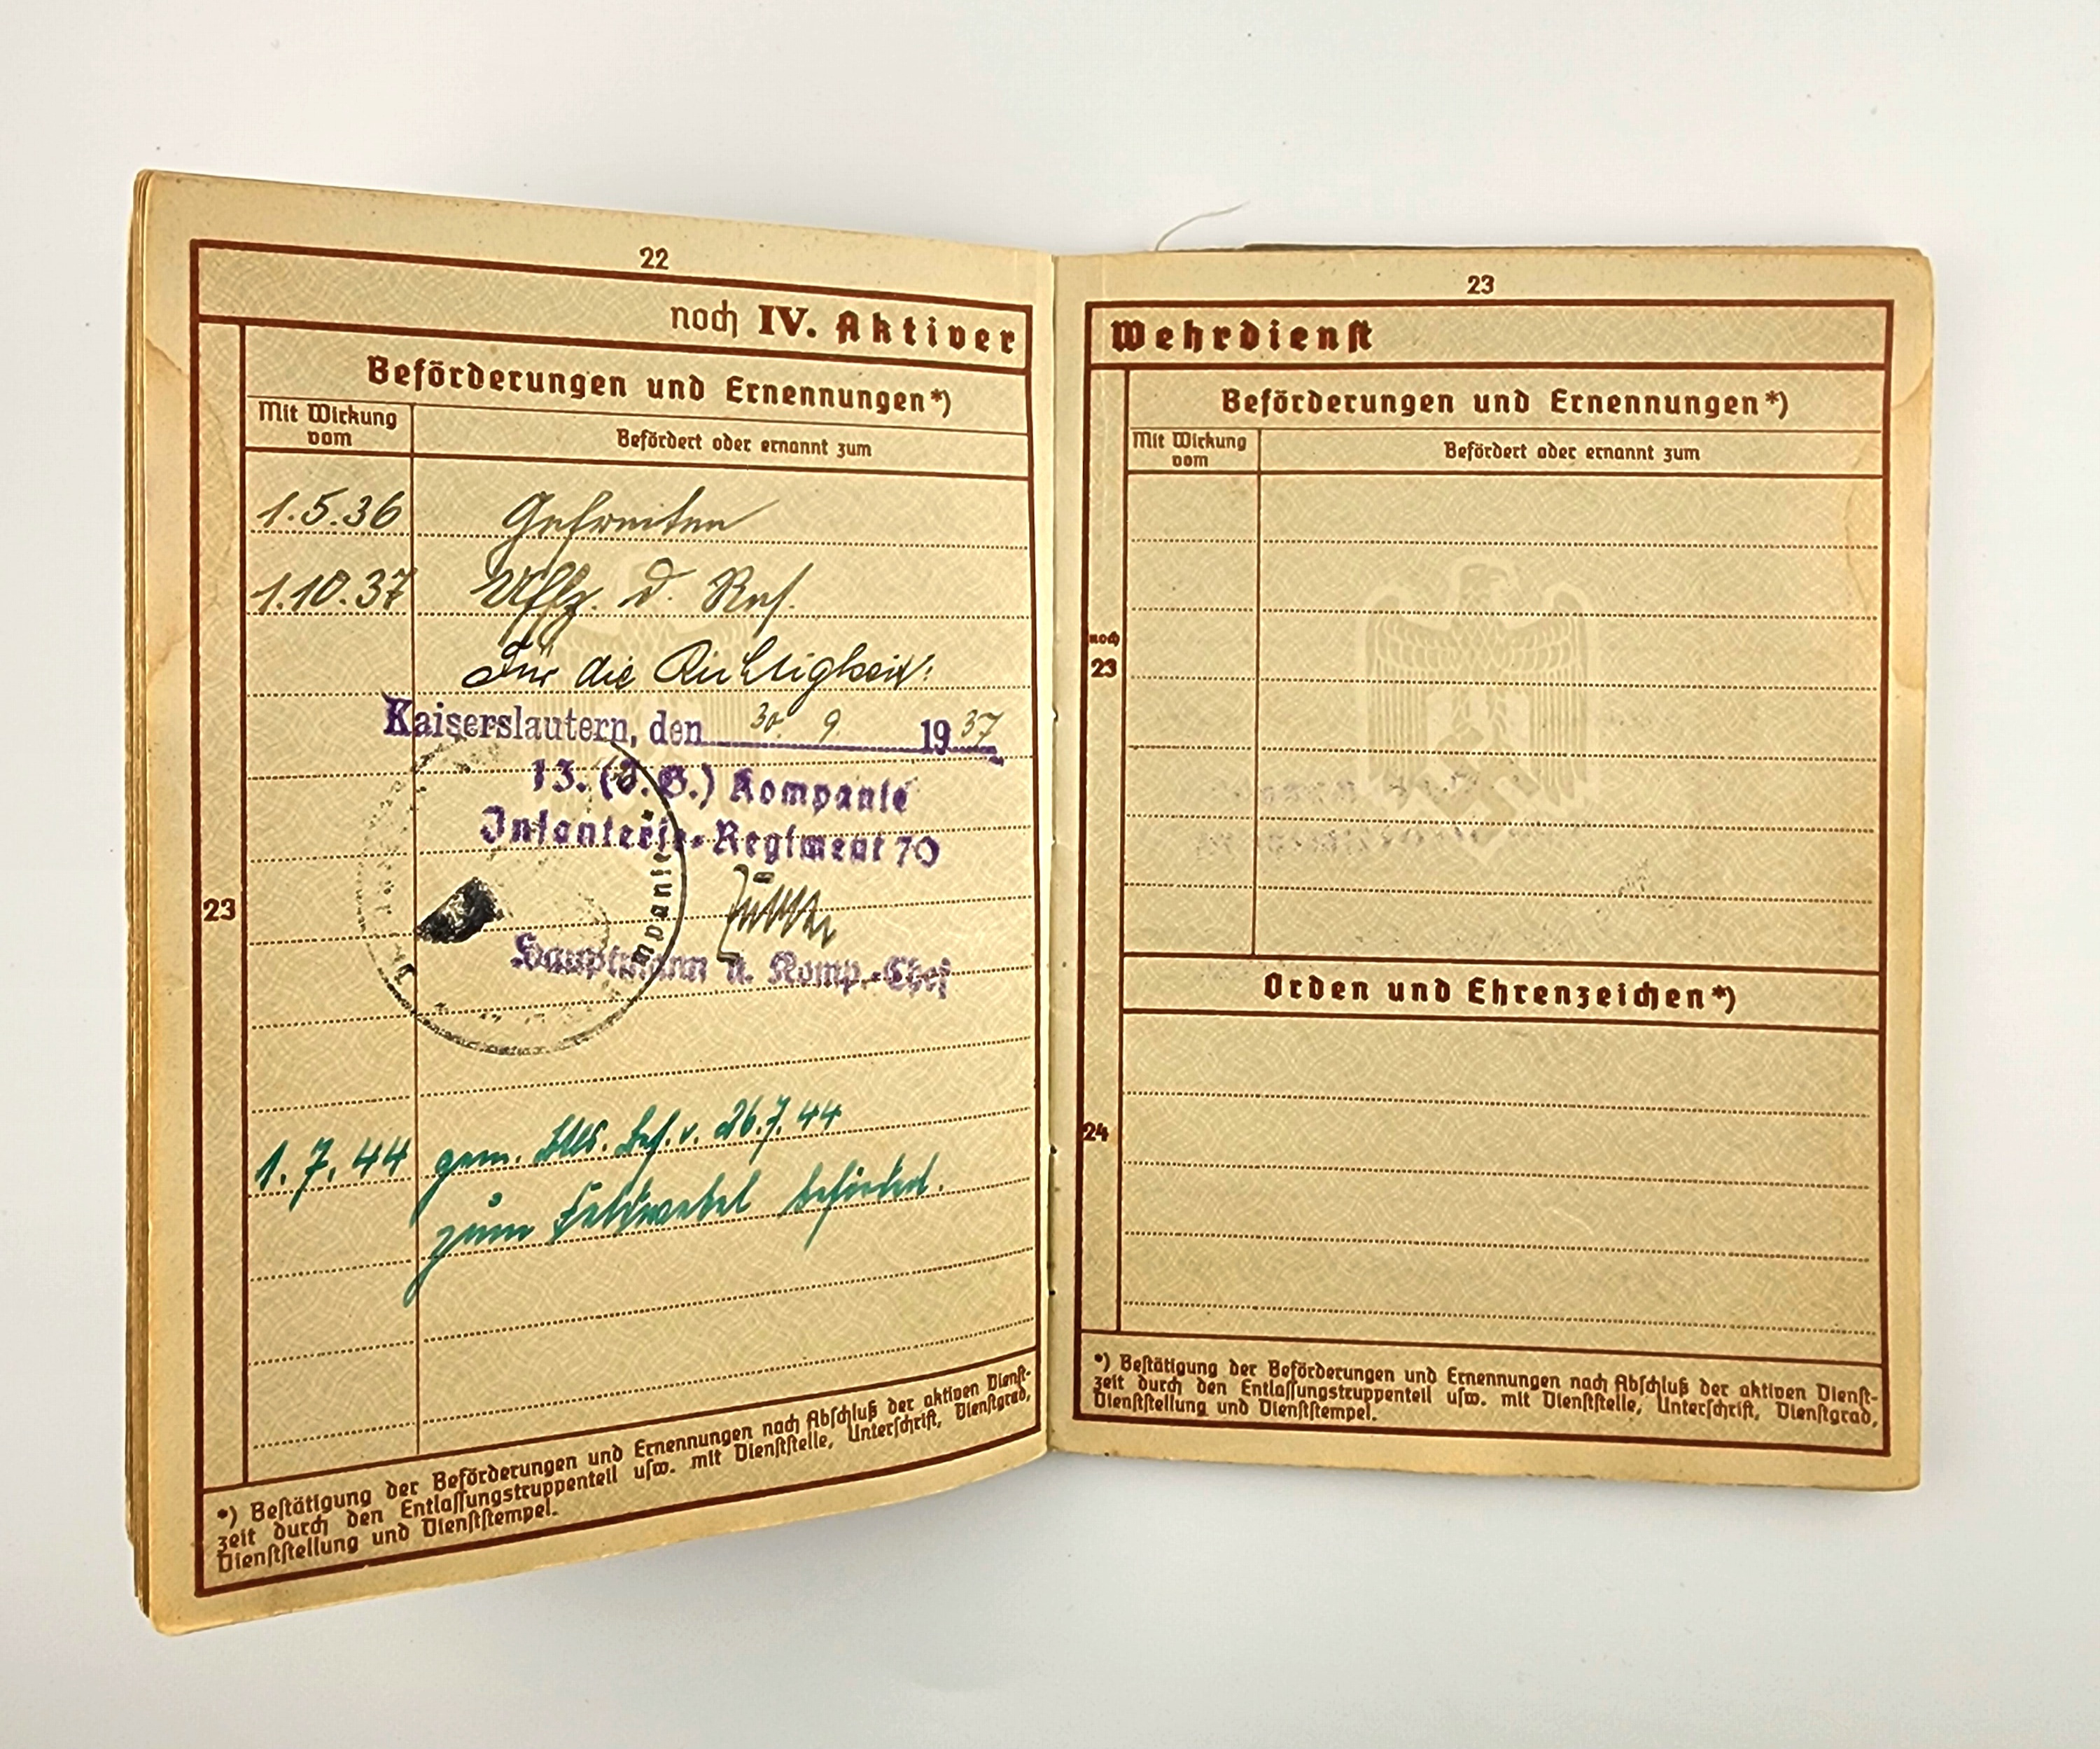 22
noch IV. Aktiver
Beförderungen und Ernennungen*)
Mit Wirkung vom
Befördert oder ernannt zum
1.5.36 Gefreiten
1.10.37 Uffz. d. Res.
Für die Richtigkeit:
Kaiserslautern, den 30. 9 1937
13. (J. G.) Kompanie
Infanterie-Regiment 70
Hauptmann u. Komp.-Chef
mpanie
23
1.7.44 gem. Btls. Bef. v. 26.7.44
zum Feldwebel befördert.
*) Bestätigung der Beförderungen und Ernennungen nach Abschluß der aktiven Dienst-
zeit durch den Entlassungstruppenteil usw. mit Dienststelle, Unterschrift, Dienstgrad,
Dienststellung und Dienststempel.
23
Wehrdienst
Beförderungen und Ernennungen*)
Mit Wirkung vom
Befördert oder ernannt zum
noch
23
Orden und Ehrenzeichen*)
24
*) Bestätigung der Beförderungen und Ernennungen nach Abschluß der aktiven Dienst-
zeit durch den Entlassungstruppenteil usw. mit Dienststelle, Unterschrift, Dienstgrad,
Dienststellung und Dienststempel.